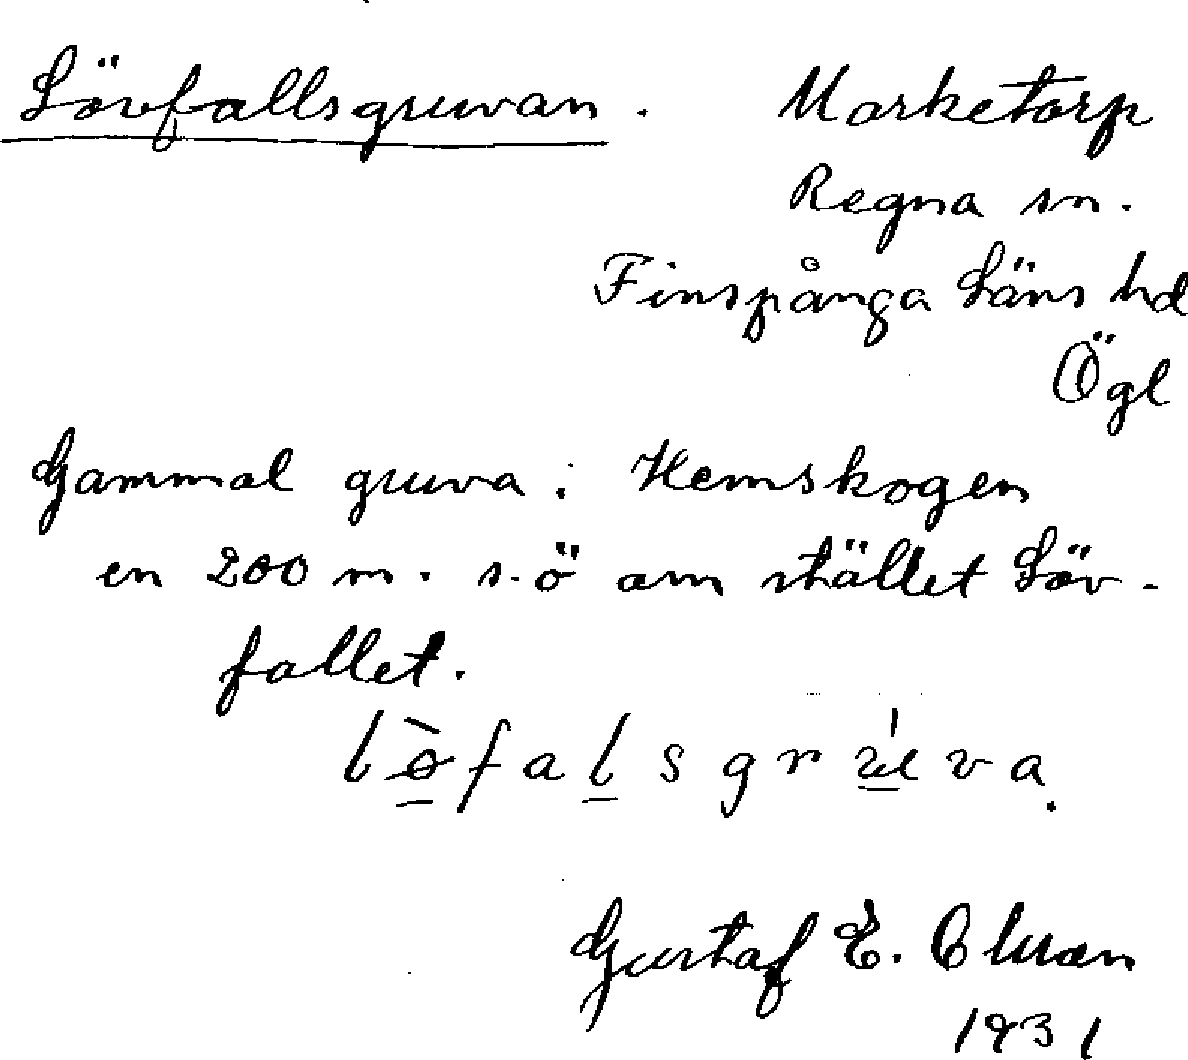 Lövfallsgruvan. Marketorp
Regna sn.
Finspånga Läns hd
Ögl
Gammal gruva i Hemskogen
en 200 m. s.ö om stället Löv-
fallet.
lø̀falsgrúva.
Gustaf E.
1931